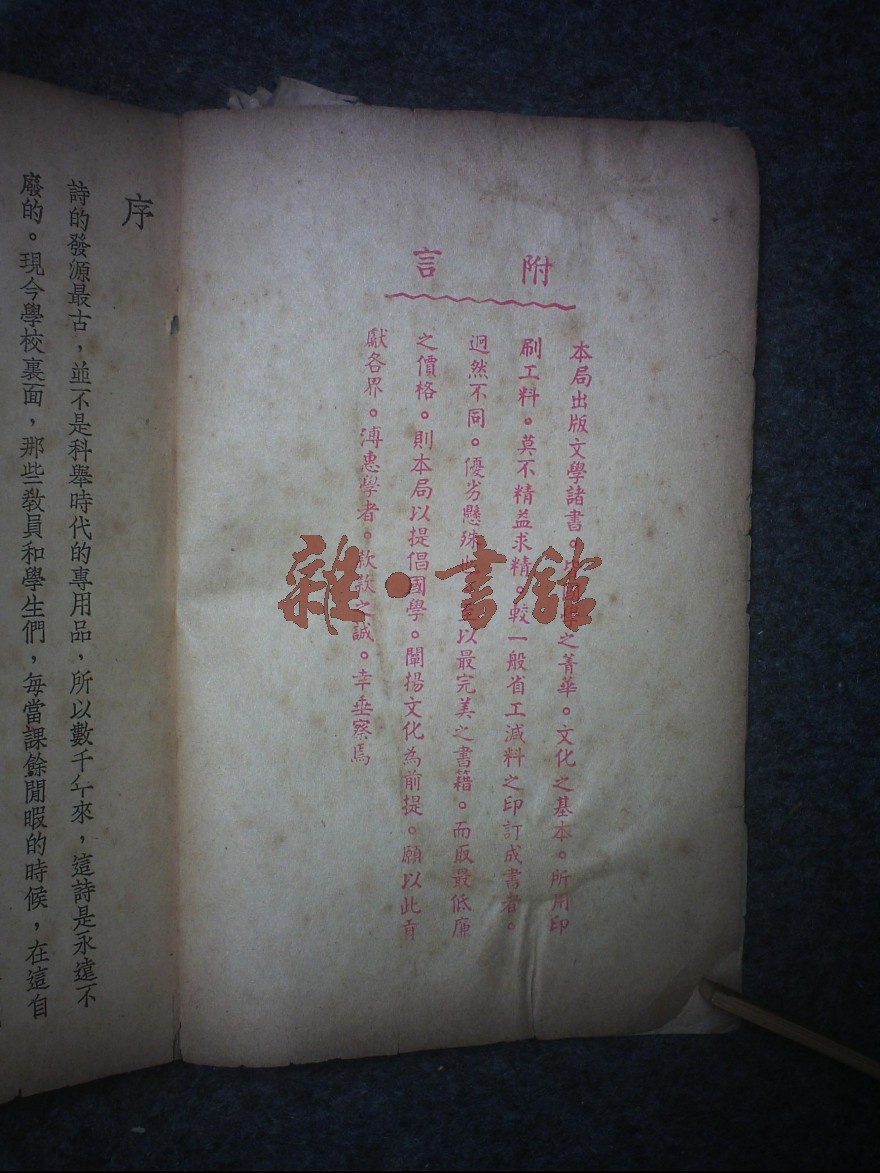 附言
本局出版文學諸書。之菁華。文化之基本。所用印
刷工料。莫不精益求精。較一般省工減料之印訂成書者。
迥然不同。優劣懸殊以最完美之書籍。而取最低廉
之價格。則本局以提倡國學。闡揚文化為前提。願以此貢
獻各界。溥惠學者。款款之誠。幸垂察焉
序
詩的發源最古，並不是科舉時代的專用品，所以數千年來，這詩是永遠不
廢的。現今學校裏面，那些教員和學生們，每當課餘閒暇的時候，在這自
雜·書館